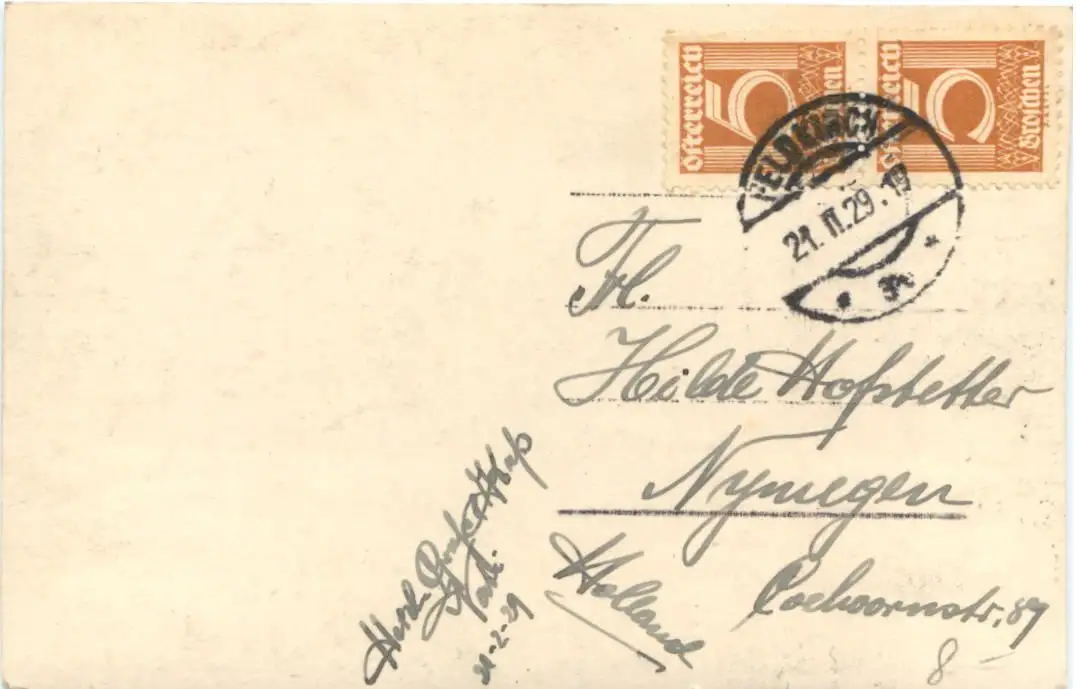 Österreich 5 Groschen
Österreich 5 Groschen
FELDKIRCH
21.II.29.
Frl.
Hilde Hofstetter
Nymegen
Holland
Coehoornstr. 87
8
21-2-29